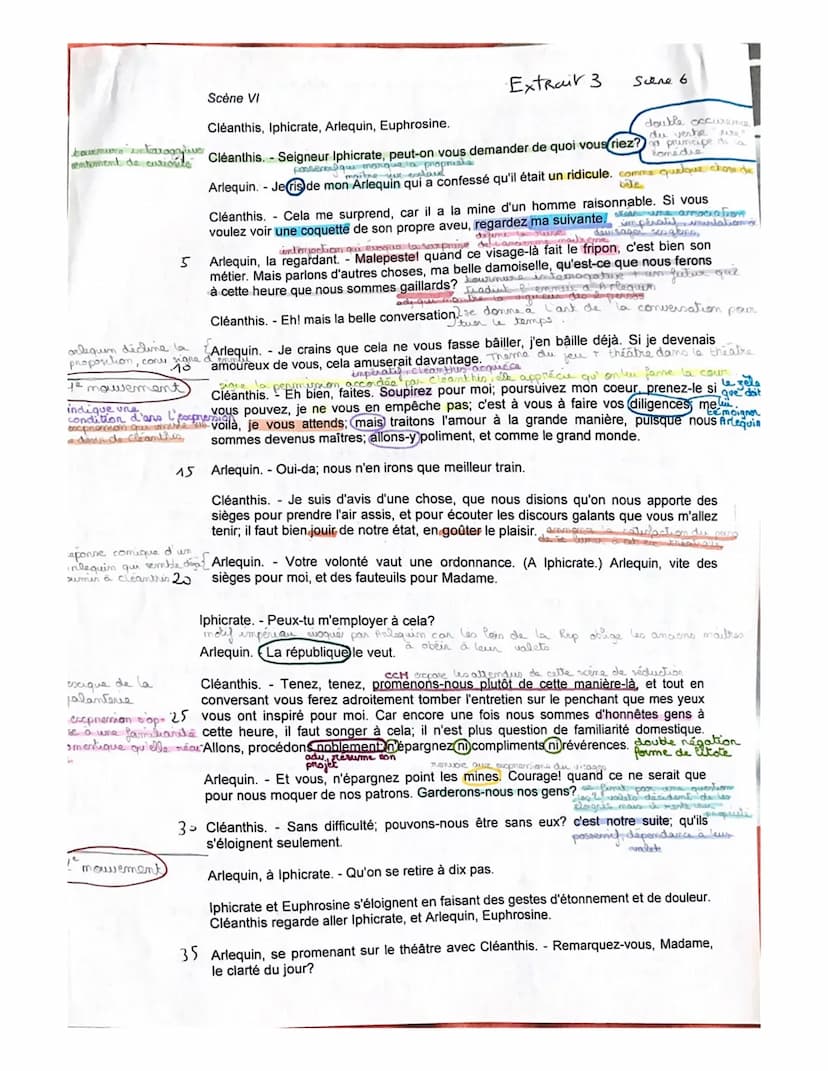 Extrait 3 Scène 6
Scène VI
Cléanthis, Iphicrate, Arlequin, Euphrosine.
double occurence
du verbe "rire"
principe de la
comédie
tournure interrogative
sentiment de curiosité
Cléanthis. - Seigneur Iphicrate, peut-on vous demander de quoi vous riez?
possessif qui marque la propriété
maître sur esclave
Arlequin. - Je ris de mon Arlequin qui a confessé qu'il était un ridicule. comme quelque chose de
bête
Cléanthis. - Cela me surprend, car il a la mine d'un homme raisonnable. Si vous
voulez voir une coquette de son propre aveu, regardez ma suivante.
impératif
interjection qui évoque la surprise
5 Arlequin, la regardant. - Malepeste! quand ce visage-là fait le fripon, c'est bien son
métier. Mais parlons d'autres choses, ma belle damoiselle, qu'est-ce que nous ferons
tournure interrogative + un futur qui
à cette heure que nous sommes gaillards? traduit l'ennui d'Arlequin
Cléanthis. - Eh! mais la belle conversation. se donne à l'art de la conversation pour
tuer le temps.
arlequin décline la
proposition, car signe d'ennui
Arlequin. - Je crains que cela ne vous fasse bâiller, j'en bâille déjà. Si je devenais
10 amoureux de vous, cela amuserait davantage. Thème du jeu + théâtre dans le théâtre
impératif
signe la permission accordée par Cléanthis, elle apprécie qu'on lui fasse la cour
1e mouvement
Cléanthis. - Eh bien, faites. Soupirez pour moi; poursuivez mon coeur, prenez-le si
le zèle
que doit
indique une
condition dans l'expression
vous pouvez, je ne vous en empêche pas; c'est à vous à faire vos diligences; me
lui
témoigner
Arlequin
voilà, je vous attends; mais traitons l'amour à la grande manière, puisque nous
sommes devenus maîtres; allons-y poliment, et comme le grand monde.
15 Arlequin. - Oui-da; nous n'en irons que meilleur train.
Cléanthis. - Je suis d'avis d'une chose, que nous disions qu'on nous apporte des
sièges pour prendre l'air assis, et pour écouter les discours galants que vous m'allez
tenir; il faut bien jouir de notre état, en goûter le plaisir.
réponse comique d'un
arlequin qui semble déjà
soumis à cléanthis
Arlequin. - Votre volonté vaut une ordonnance. (A Iphicrate.) Arlequin, vite des
20 sièges pour moi, et des fauteuils pour Madame.
Iphicrate. - Peux-tu m'employer à cela?
motif impérieux évoqué par Arlequin car les lois de la Rep oblige les anciens maîtres
à obéir à leur valets
Arlequin. - La république le veut.
CCM expose les attendus de cette scène de séduction
lexique de la
galanterie
Cléanthis. - Tenez, tenez, promenons-nous plutôt de cette manière-là, et tout en
conversant vous ferez adroitement tomber l'entretien sur le penchant que mes yeux
25 vous ont inspiré pour moi. Car encore une fois nous sommes d'honnêtes gens à
cette heure, il faut songer à cela; il n'est plus question de familiarité domestique.
Allons, procédons noblement, n'épargnez ni compliments ni révérences. double négation
forme de litote
adv, résume son
projet
Arlequin. - Et vous, n'épargnez point les mines. Courage! quand ce ne serait que
pour nous moquer de nos patrons. Garderons-nous nos gens?
30 Cléanthis. - Sans difficulté; pouvons-nous être sans eux? c'est notre suite; qu'ils
s'éloignent seulement.
possessif, dépendance à leur
valets
mouvement
Arlequin, à Iphicrate. - Qu'on se retire à dix pas.
Iphicrate et Euphrosine s'éloignent en faisant des gestes d'étonnement et de douleur.
Cléanthis regarde aller Iphicrate, et Arlequin, Euphrosine.
35 Arlequin, se promenant sur le théâtre avec Cléanthis. - Remarquez-vous, Madame,
le clarté du jour?